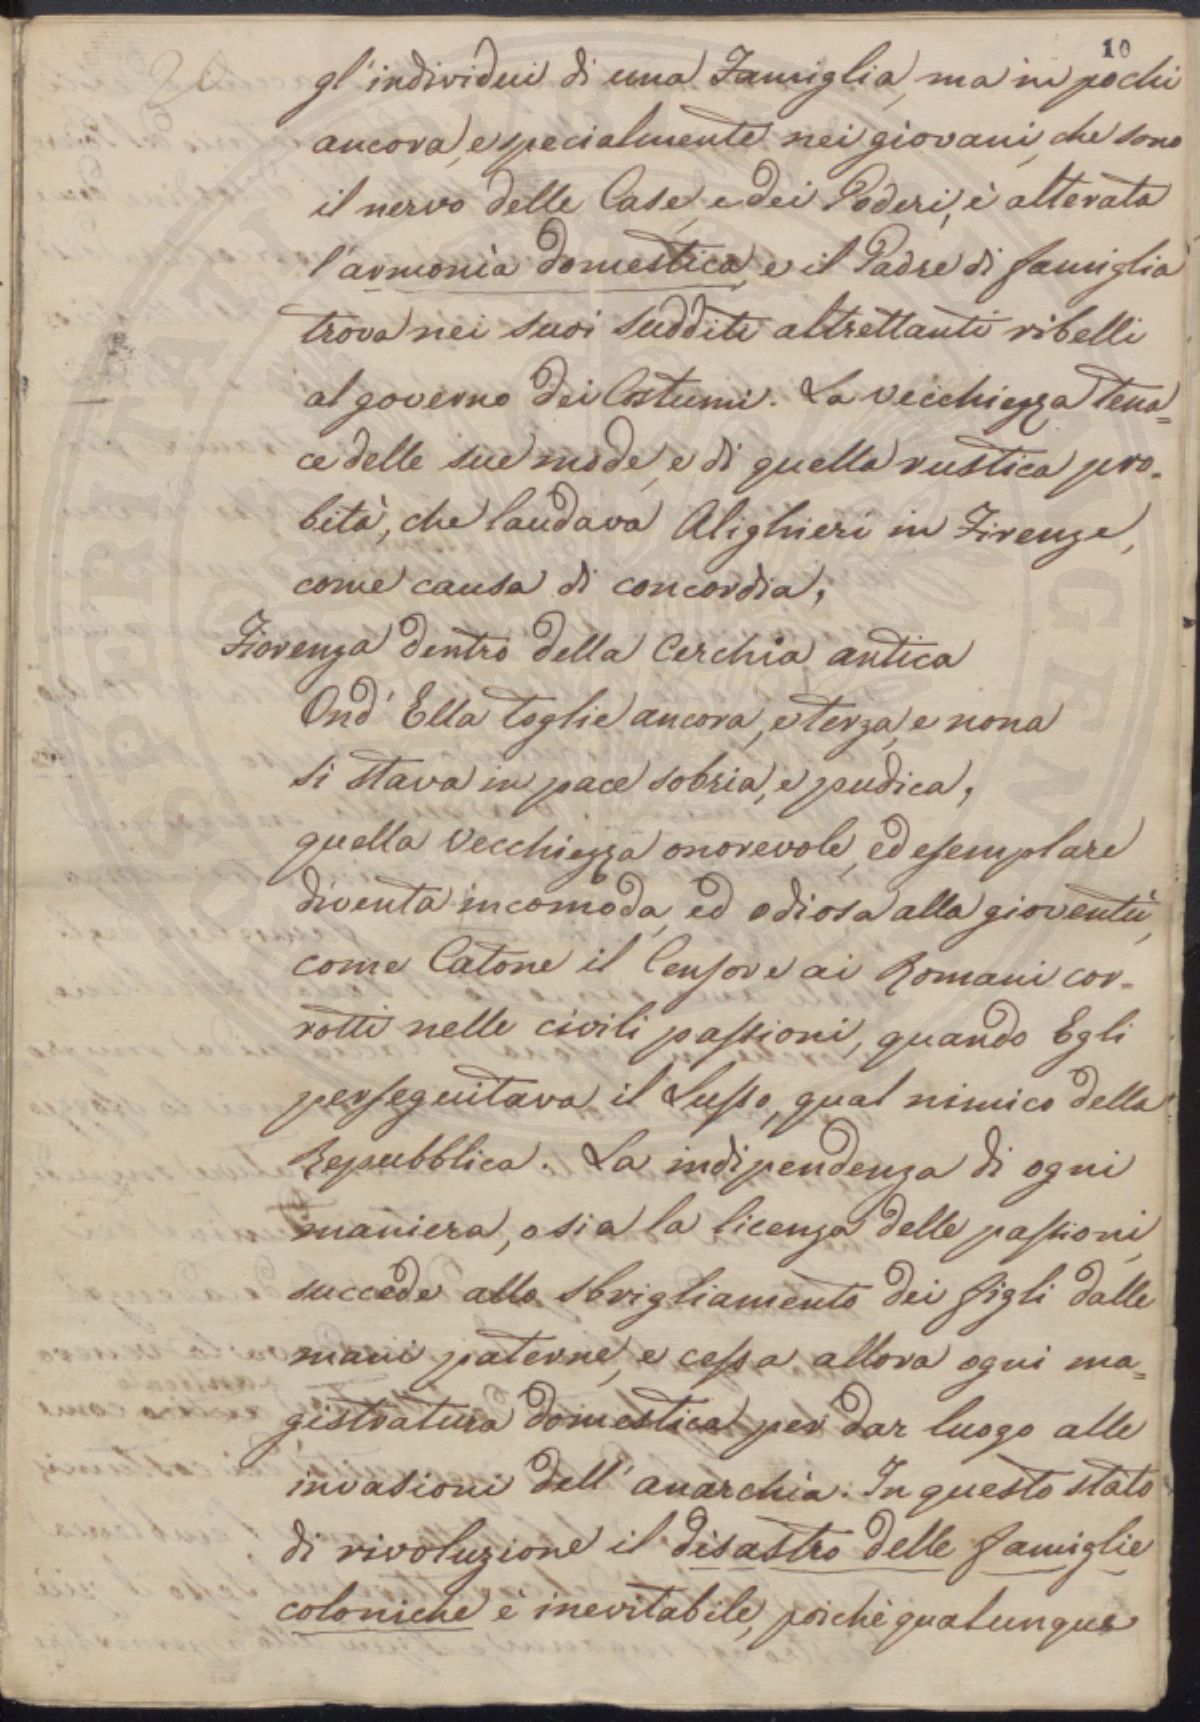 10
gl'individui di una Famiglia, ma in pochi
ancora, e specialmente nei giovani, che sono
il nervo delle Case, e dei Poderi, è alterata
l'armonia domestica, e il Padre di famiglia
trova nei suoi sudditi altrettanti ribelli
al governo dei Costumi. La vecchiezza tena=
ce delle sue mode, e di quella rustica pro-
bità, che laudava Alighieri in Firenze,
come causa di concordia;
Fiorenza dentro della Cerchia antica
Ond' Ella toglie ancora, e terza, e nona
si stava in pace sobria, e pudica,
quella Vecchiezza onorevole, ed esemplare
diventa incomoda, ed odiosa alla gioventù,
come Catone il Censore ai Romani cor-
rotti nelle civili passioni, quando Egli
perseguitava il Lusso, qual nimico della
Repubblica. La indipendenza di ogni
maniera, o sia la licenza delle passioni,
succede allo sbrigliamento dei figli dalle
mani paterne, e cessa allora ogni ma=
gistratura domestica per dar luogo alle
invasioni dell'anarchia. In questo stato
di rivoluzione il disastro delle famiglie
coloniche è inevitabile, poichè qualunque